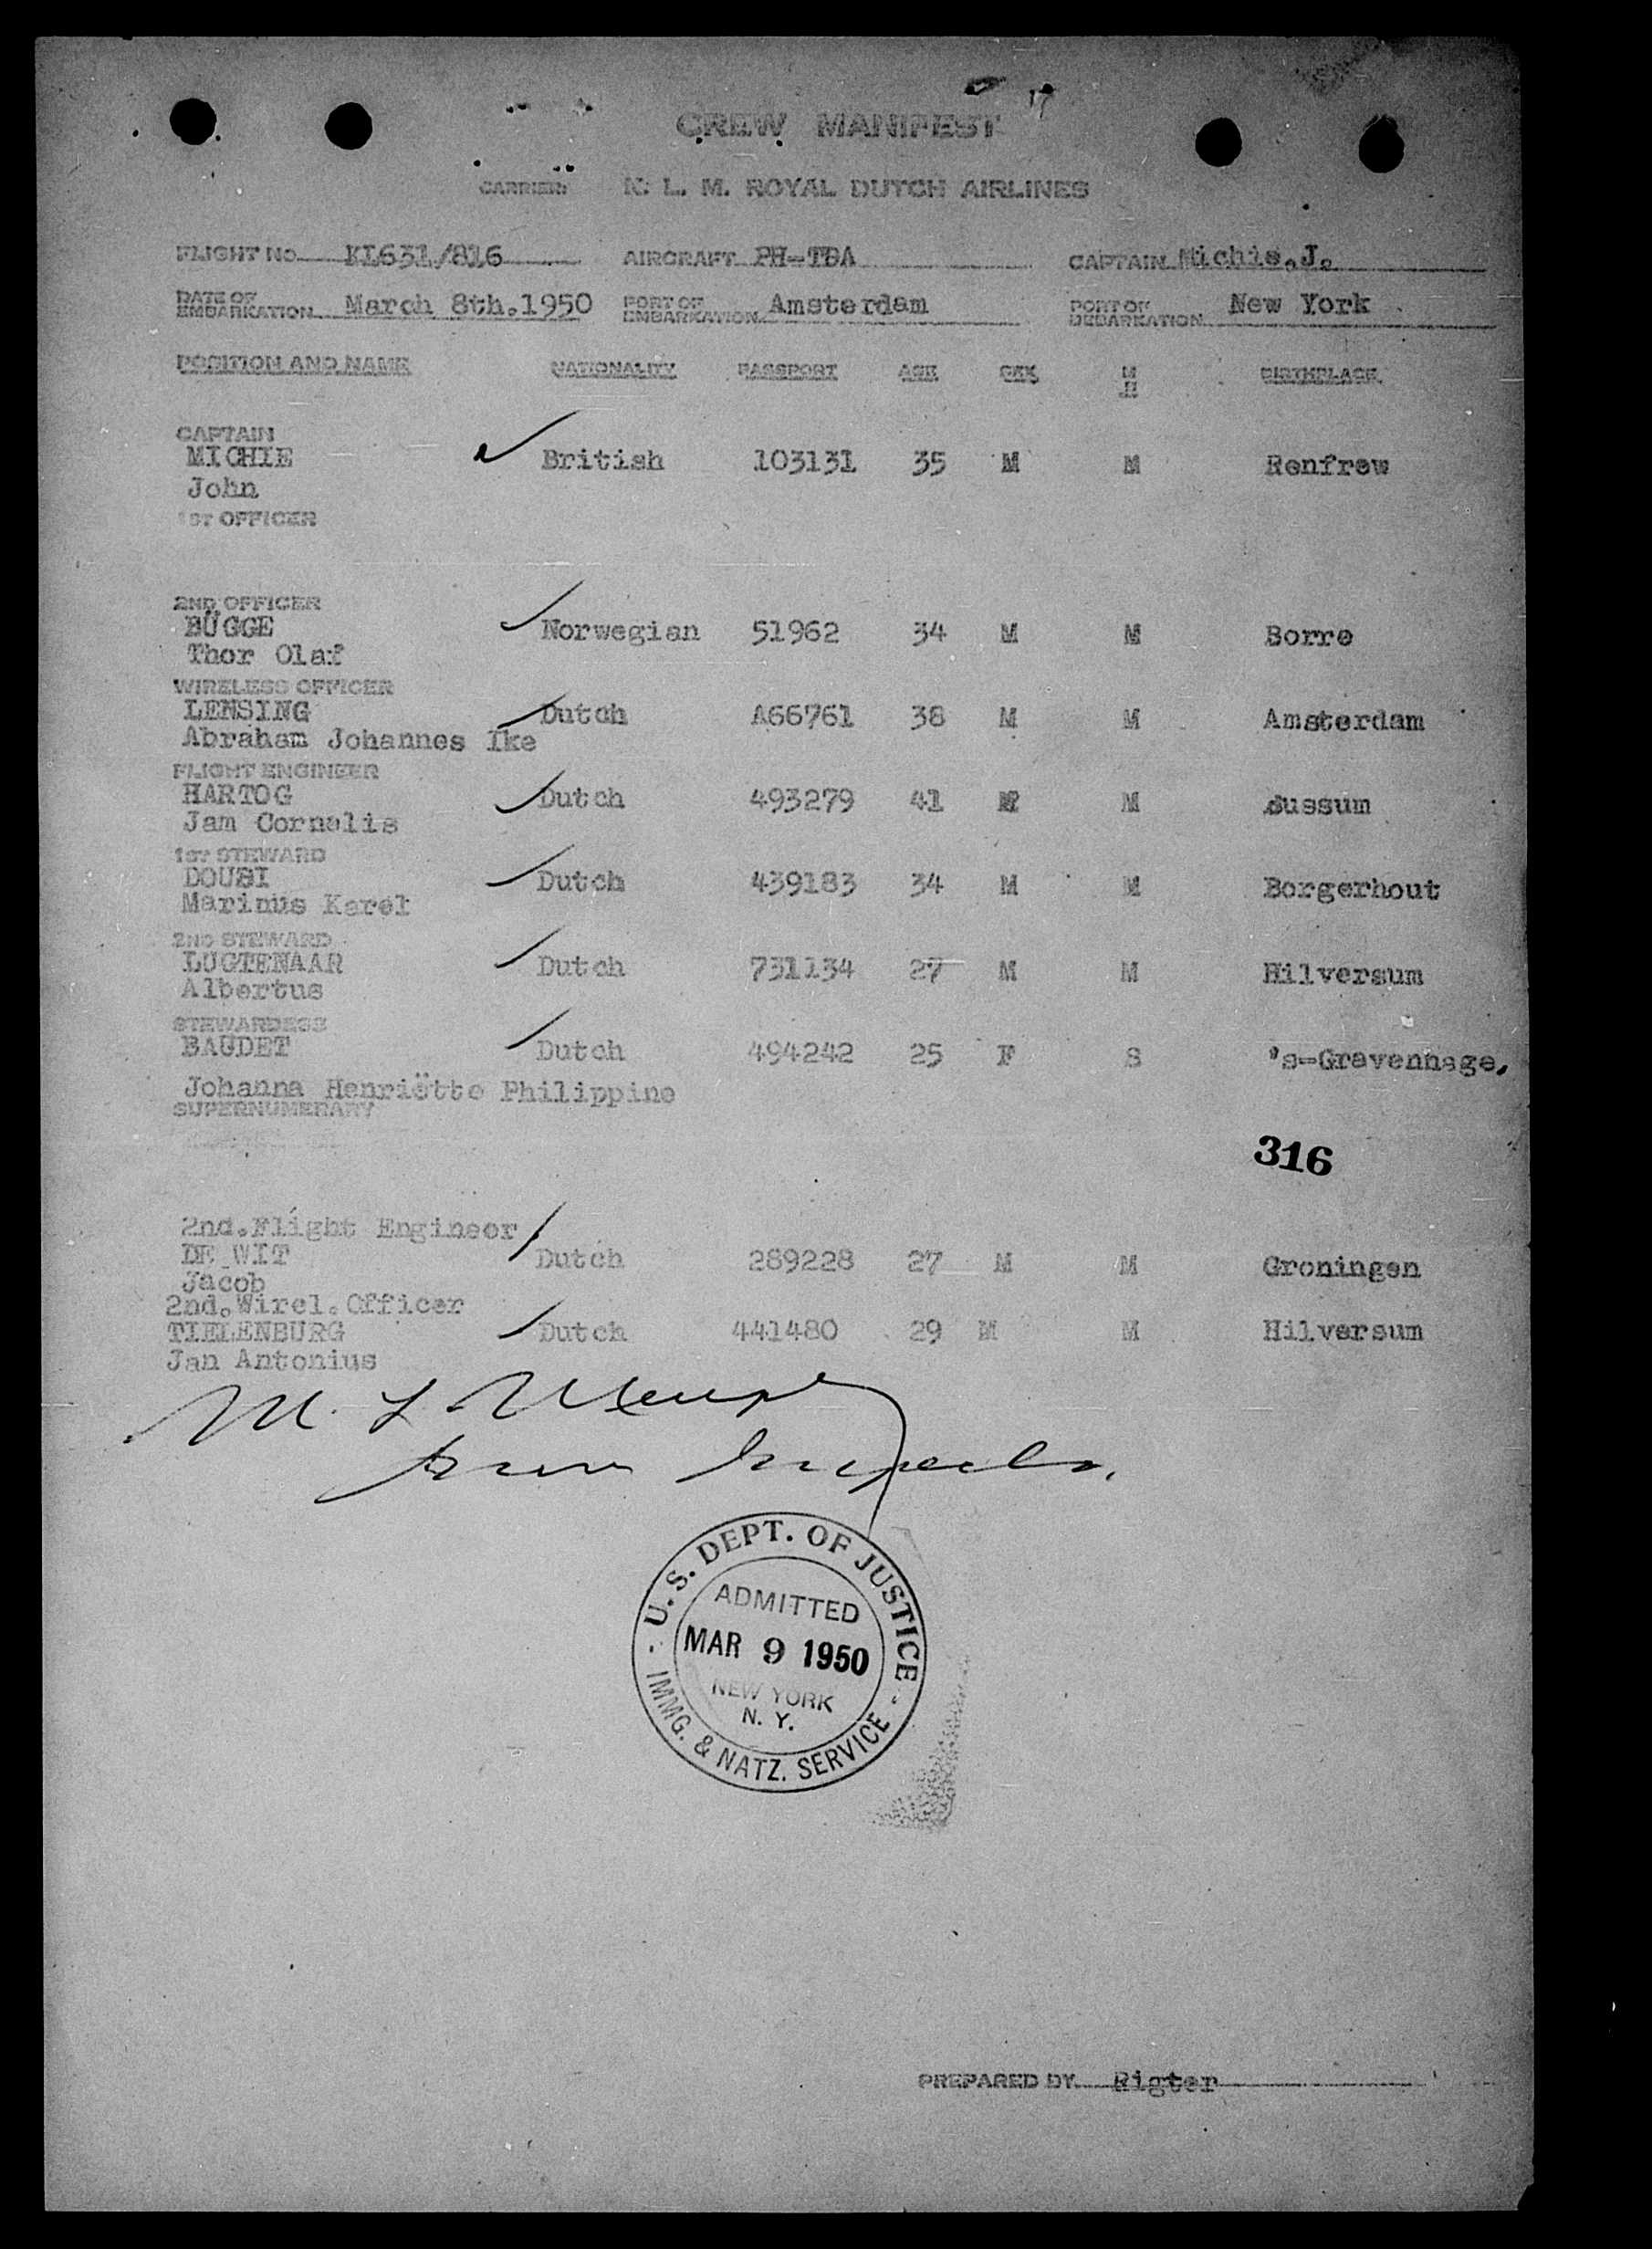 CREW MANIFEST
CARRIER: K. L. M. ROYAL DUTCH AIRLINES
FLIGHT NO. KL631/816 AIRCRAFT PH-TDA CAPTAIN Michie, J.
DATE OF EMBARKATION March 8th.1950 PORT OF EMBARKATION Amsterdam PORT OF DEBARKATION New York
POSITION AND NAME NATIONALITY PASSPORT AGE SEX M S BIRTHPLACE
CAPTAIN
MICHIE British 103131 35 M M Renfrew
John
1ST OFFICER
2ND OFFICER
BÜGGE Norwegian 51962 34 M M Borre
Thor Olaf
WIRELESS OFFICER
LENSING Dutch A66761 38 M M Amsterdam
Abraham Johannes Ike
FLIGHT ENGINEER
HARTOG Dutch 493279 41 M M Bussum
Jam Cornelis
1ST STEWARD
DOUSI Dutch 439183 34 M M Borgerhout
Marinus Karel
2ND STEWARD
LUGTENAAR Dutch 731134 27 M M Hilversum
Albertus
STEWARDESS
BAUDET Dutch 494242 25 F S 's-Gravenhage,
Johanna Henriëtte Philippine
SUPERNUMERARY
316
2nd.Flight Engineer
DE WIT Dutch 289228 27 M M Groningen
Jacob
2nd.Wirel.Officer
TIELENBURG Dutch 441480 29 M M Hilversum
Jan Antonius
U. S. DEPT. OF JUSTICE
ADMITTED
MAR 9 1950
NEW YORK
N. Y.
IMMG. & NATZ. SERVICE
PREPARED BY Rigter